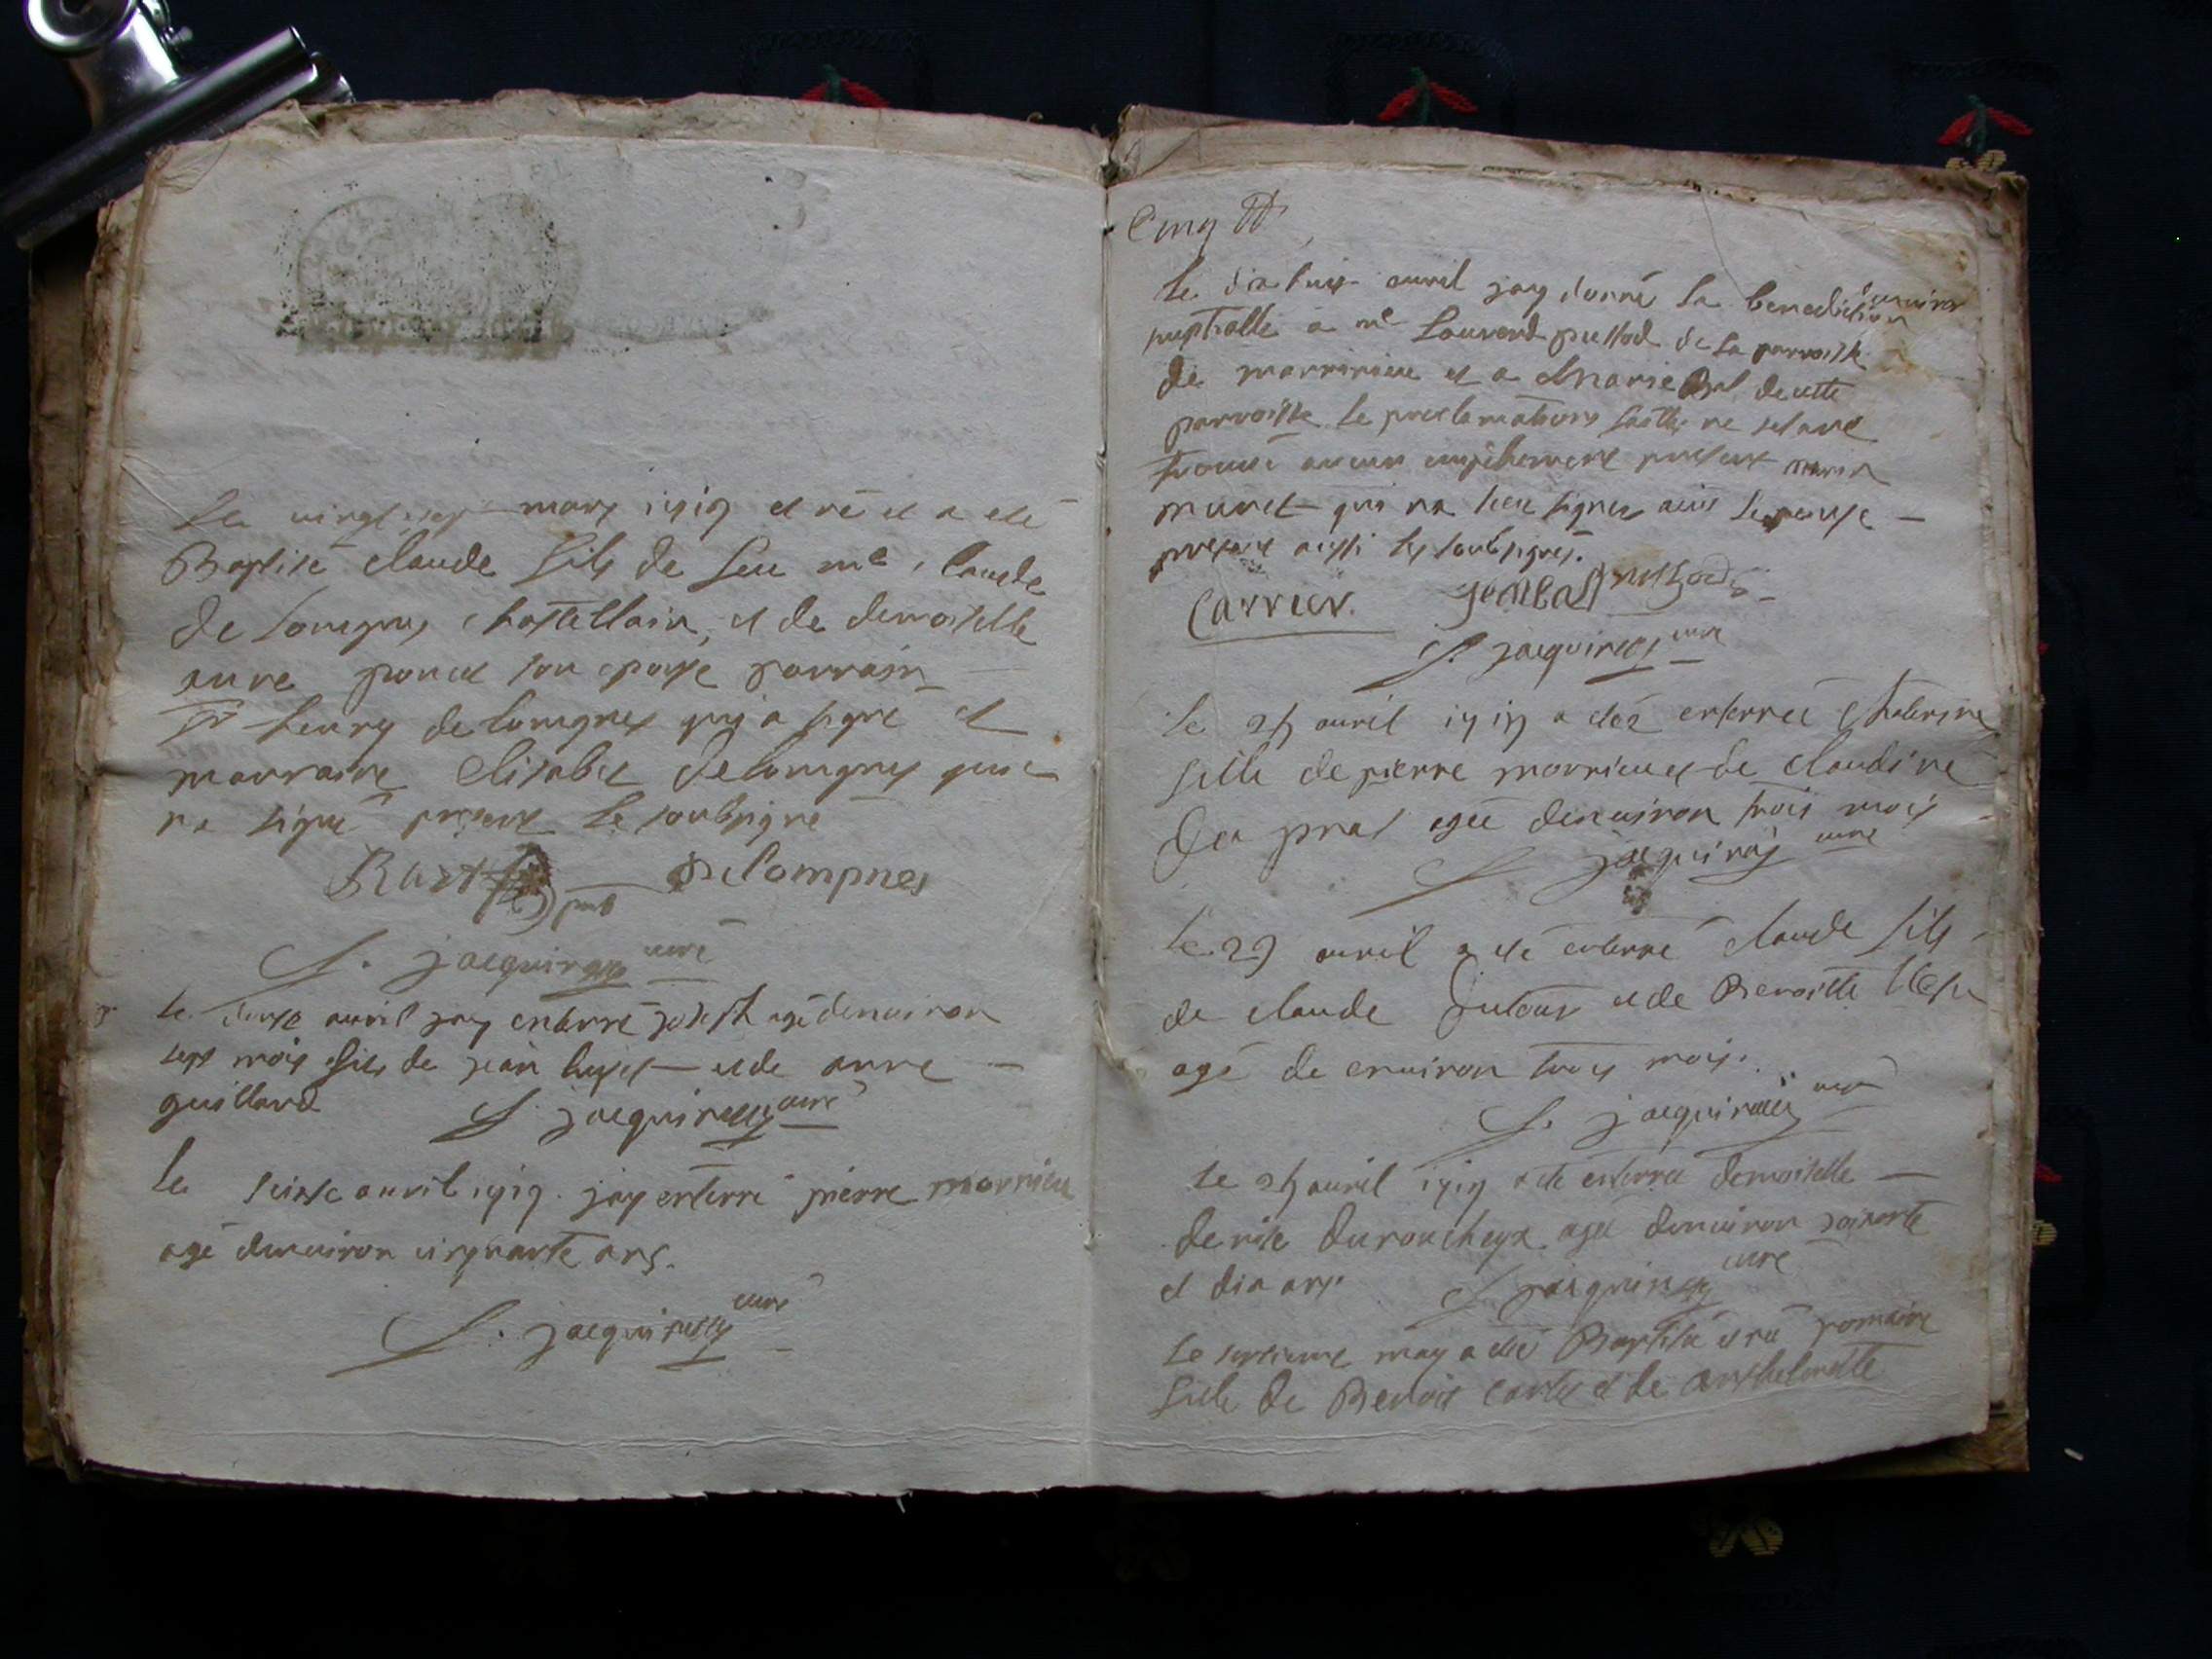 Le vingt sep mars 1717 est né et a esté
Baptisé claude fils de feu me claude
de Longnes chastellain, et de demoiselle
anne poncet son epouse parrain
sr henry de Longnes qui a signé et
marraine Elisabet de Longnes qui
na signé present le soubsigné
Rust Delompnes
curé
Le douse auril jay enterré joseph agé denuiron
sept mois fils de jean et de anne
guillard S. jacquin curé
Le seisse auril 1717 jay enterré pierre morrieu
agé denuiron cinquante ans.
S. jacquin curé
Cinq
Le dix huit auril jay donné la benediction
nuptialle a me Laurend de la parroisse
de et a Marie de cette
parroisse le proclamations faitte ne sestant
trouué aucun empêchement present
muret qui na sceu signer
present aussi les soubsignés.
Carrier.
S. jacquin curé
Le 25 auril 1717 a estée enterrée Chaterine
fille de pierre morrieu et de claudine
Du prat agée denuiron trois mois
S. jacquin curé
Le 29 auril a esté enterré claude fils
de claude Dutour et de Benoitte
agé de enuiron trois mois.
S. jacquin curé
Le 25 auril 1717 a esté enterrée demoiselle
denise agée denuiron soixante
et dix ans S. jacquin curé
Le septieme may a esté Baptisée et née romaine
fille de Benoit et de anthelmette